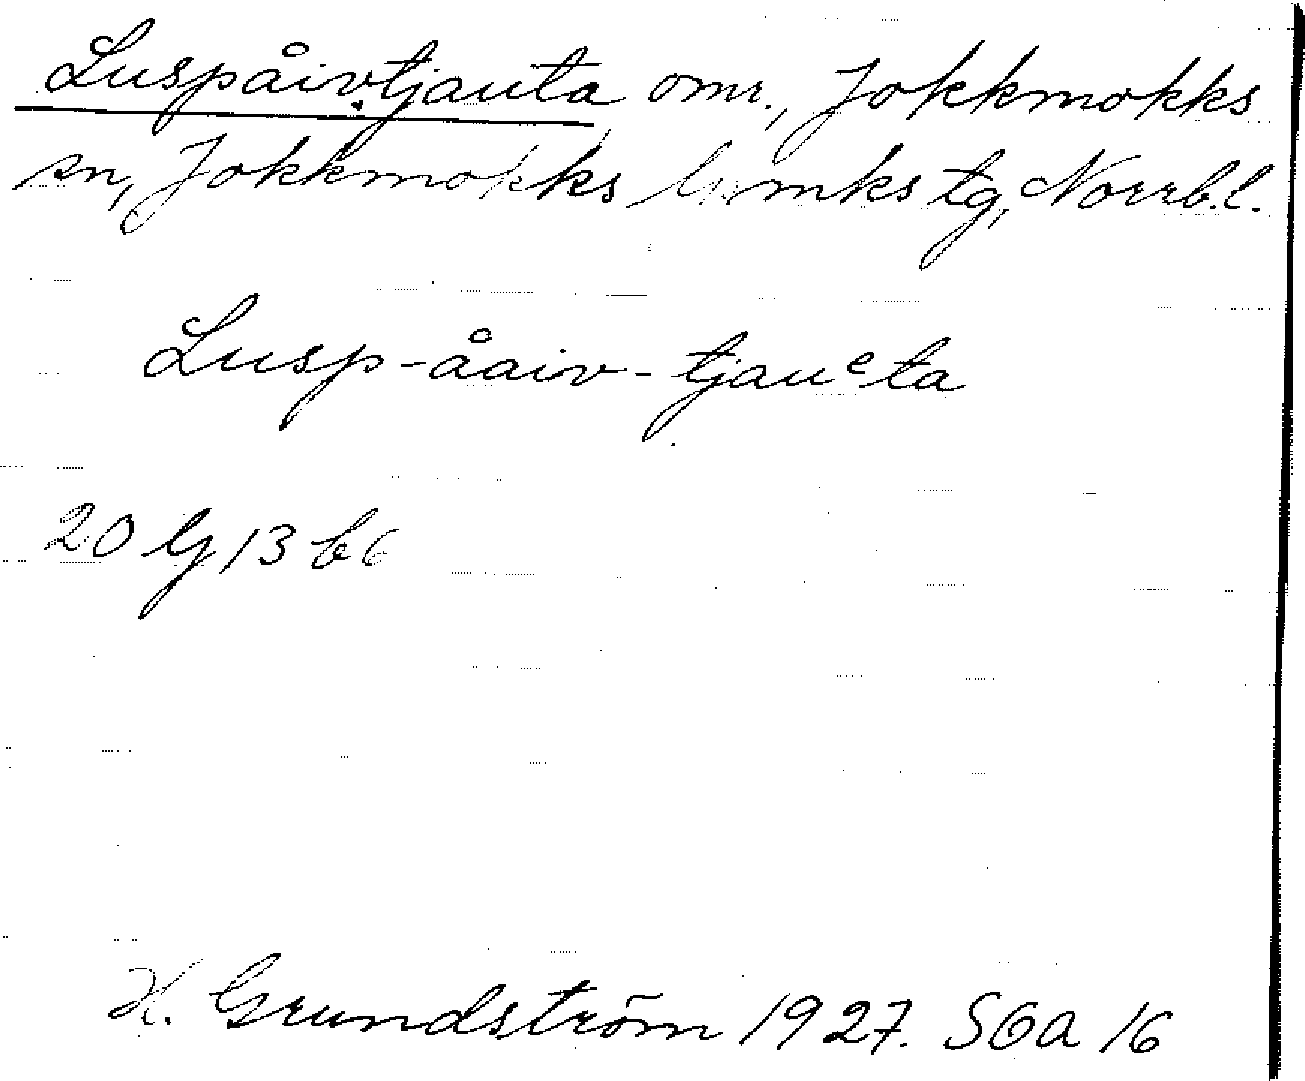 Luspåivtjauta omr., Jokkmokks
sn, Jokkmokks lpmks tg, Norrb.l.
Lusp-åaiv-tjauᵉta
20 G 13 b6
H. Grundström 1927. SOA 16